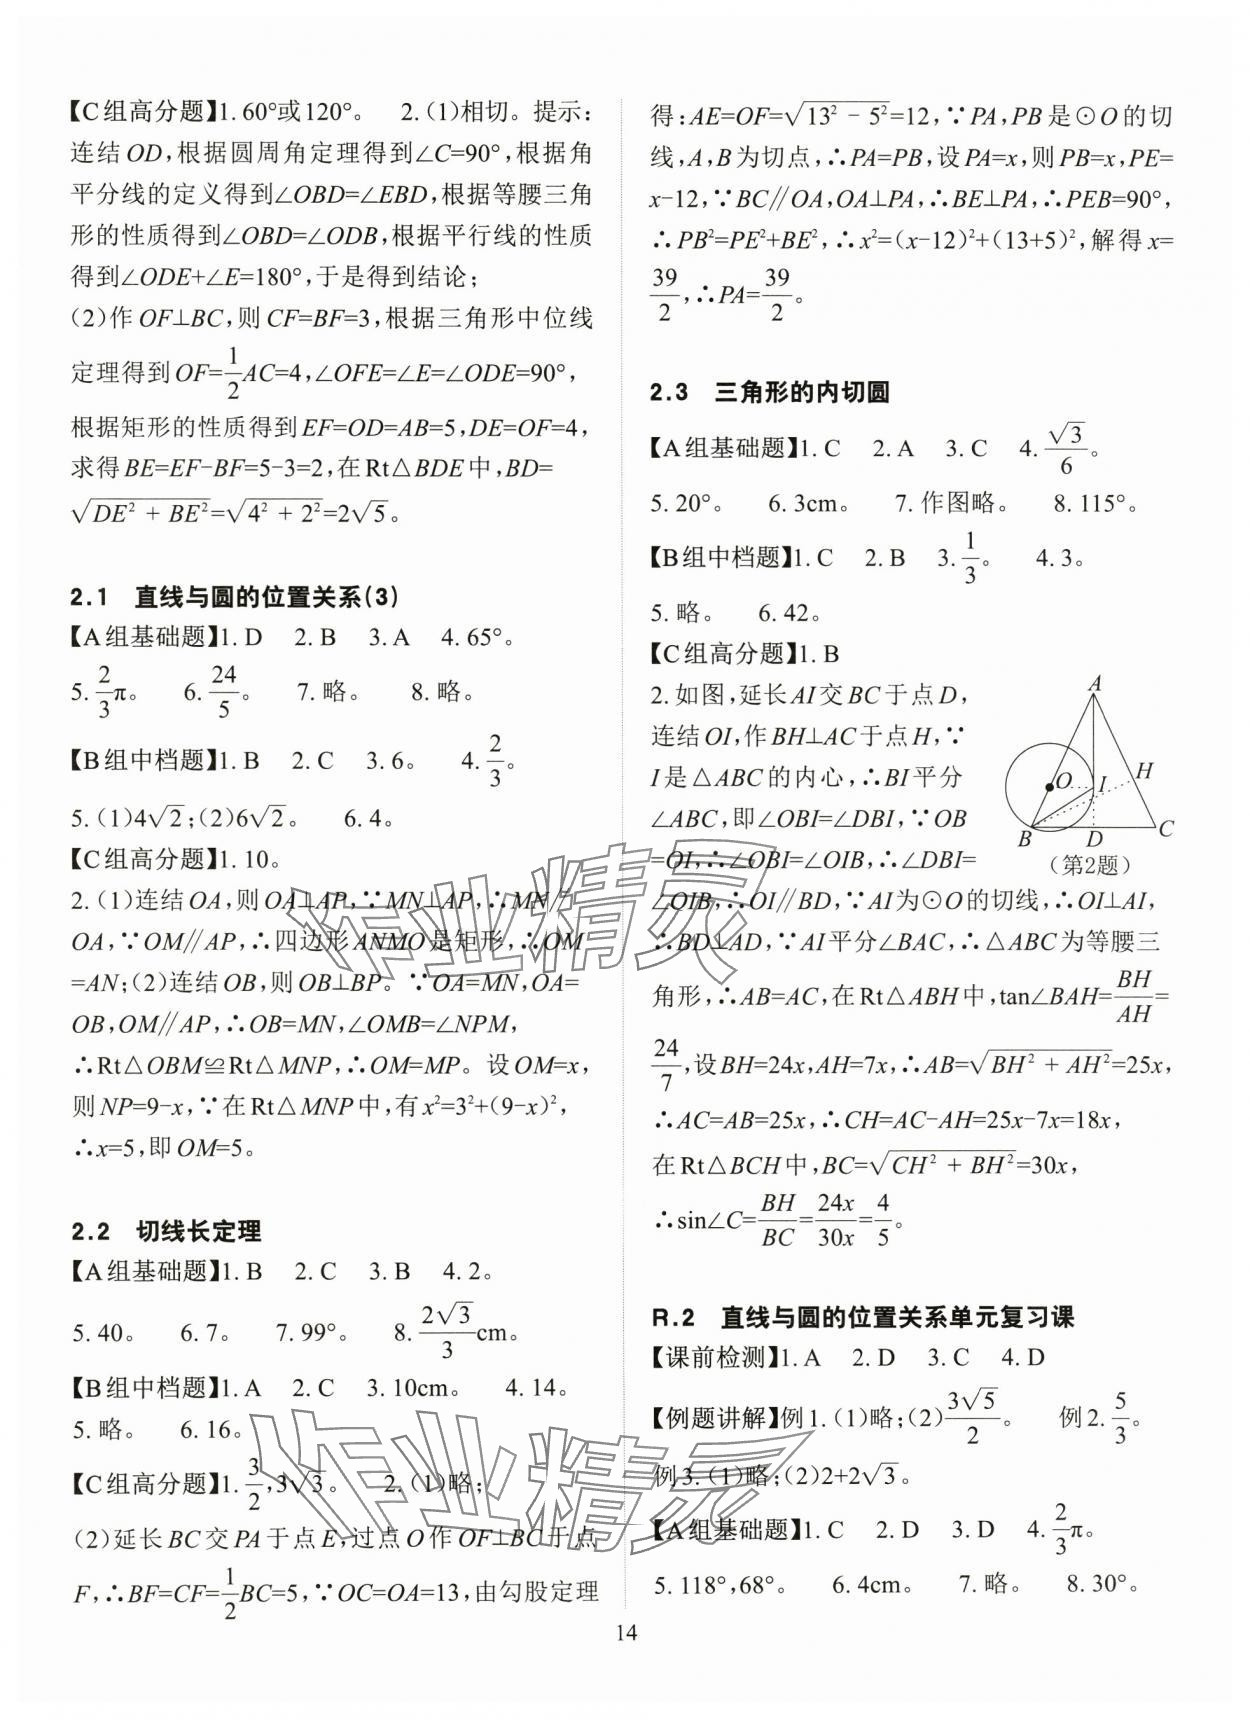 【C组高分题】1. 60°或120°。 2. (1)相切。提示:
连结OD,根据圆周角定理得到∠C=90°,根据角
平分线的定义得到∠OBD=∠EBD,根据等腰三角
形的性质得到∠OBD=∠ODB,根据平行线的性质
得到∠ODE+∠E=180°,于是得到结论;
(2)作OF⊥BC,则CF=BF=3,根据三角形中位线
定理得到OF=1/2AC=4,∠OFE=∠E=∠ODE=90°,
根据矩形的性质得到EF=OD=AB=5,DE=OF=4,
求得BE=EF-BF=5-3=2,在Rt△BDE中,BD=
√(DE²+BE²)=√(4²+2²)=2√5。
2.1 直线与圆的位置关系(3)
【A组基础题】1. D 2. B 3. A 4. 65°。
5. 2/3π。 6. 24/5。 7. 略。 8. 略。
【B组中档题】1. B 2. C 3. 6。 4. 2/3。
5. (1)4√2;(2)6√2。 6. 4。
【C组高分题】1. 10。
2. (1)连结OA,则OA⊥AP,∵MN⊥AP,∴MN∥
OA,∵OM∥AP,∴四边形ANMO是矩形,∴OM
=AN;(2)连结OB,则OB⊥BP。∵OA=MN,OA=
OB,OM∥AP,∴OB=MN,∠OMB=∠NPM,
∴Rt△OBM≌Rt△MNP,∴OM=MP。设OM=x,
则NP=9-x,∵在Rt△MNP中,有x²=3²+(9-x)²,
∴x=5,即OM=5。
2.2 切线长定理
【A组基础题】1. B 2. C 3. B 4. 2。
5. 40。 6. 7。 7. 99°。 8. 2√3/3cm。
【B组中档题】1. A 2. C 3. 10cm。 4. 14。
5. 略。 6. 16。
【C组高分题】1. 3/2,3√3。 2. (1)略;
(2)延长BC交PA于点E,过点O作OF⊥BC于点
F,∴BF=CF=1/2BC=5,∵OC=OA=13,由勾股定理
得:AE=OF=√(13²-5²)=12,∵PA,PB是⊙O的切
线,A,B为切点,∴PA=PB,设PA=x,则PB=x,PE=
x-12,∵BC∥OA,OA⊥PA,∴BE⊥PA,∴PEB=90°,
∴PB²=PE²+BE²,∴x²=(x-12)²+(13+5)²,解得x=
39/2,∴PA=39/2。
2.3 三角形的内切圆
【A组基础题】1. C 2. A 3. C 4. √3/6。
5. 20°。 6. 3cm。 7. 作图略。 8. 115°。
【B组中档题】1. C 2. B 3. 1/3。 4. 3。
5. 略。 6. 42。
【C组高分题】1. B
2. 如图,延长AI交BC于点D,
连结OI,作BH⊥AC于点H,∵
I是△ABC的内心,∴BI平分
∠ABC,即∠OBI=∠DBI,∵OB
=OI,∴∠OBI=∠OIB,∴∠DBI=
A
O
I
H
B
D
C
(第2题)
∠OIB,∴OI∥BD,∵AI为⊙O的切线,∴OI⊥AI,
∴BD⊥AD,∵AI平分∠BAC,∴△ABC为等腰三
角形,∴AB=AC,在Rt△ABH中,tan∠BAH=BH/AH=
24/7,设BH=24x,AH=7x,∴AB=√(BH²+AH²)=25x,
∴AC=AB=25x,∴CH=AC-AH=25x-7x=18x,
在Rt△BCH中,BC=√(CH²+BH²)=30x,
∴sin∠C=BH/BC=24x/30x=4/5。
R.2 直线与圆的位置关系单元复习课
【课前检测】1. A 2. D 3. C 4. D
【例题讲解】例1. (1)略;(2)3√5/2。 例2. 5/3。
例3. (1)略;(2)2+2√3。
【A组基础题】1. C 2. D 3. D 4. 2/3π。
5. 118°,68°。 6. 4cm。 7. 略。 8. 30°。
14
作业精灵
作业精灵